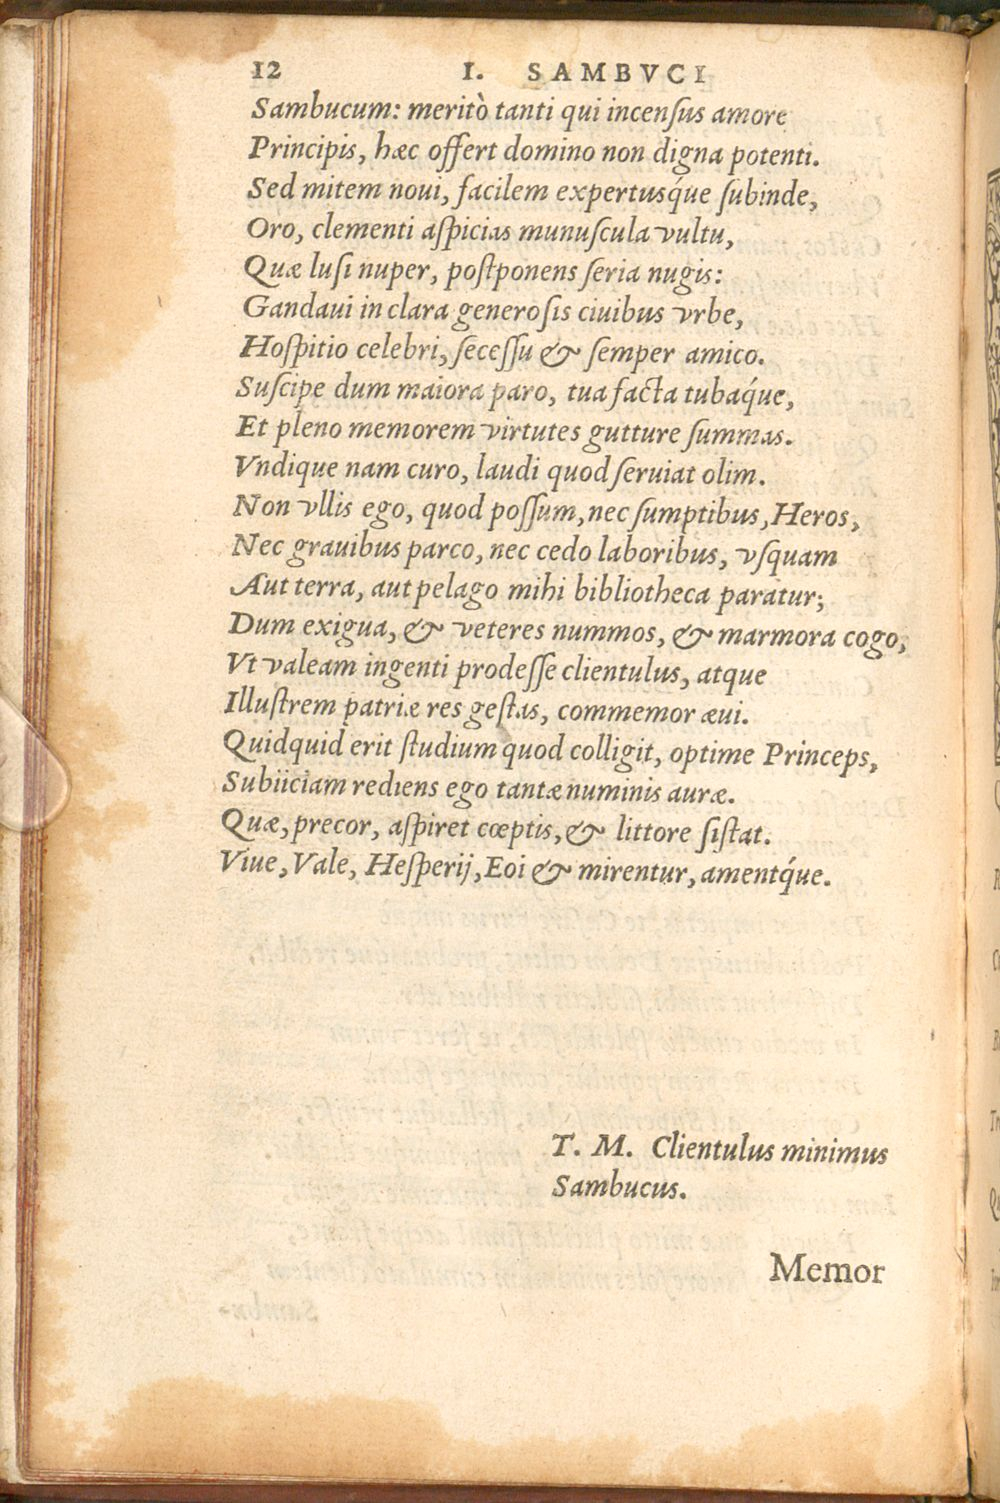 12 I. SAMBVCI
Sambucum: meritò tanti qui incenſus amore
Principis, hæc offert domino non digna potenti.
Sed mitem noui, facilem expertusq́ue ſubinde,
Oro, clementi aſpicias munuſcula vultu,
Quæ luſi nuper, poſtponens ſeria nugis:
Gandaui in clara generoſis ciuibus vrbe,
Hoſpitio celebri, ſeceſſu & ſemper amico.
Suſcipe dum maiora paro, tua facta tubaq́ue,
Et pleno memorem virtutes gutture ſummas.
Vndique nam curo, laudi quod ſeruiat olim.
Non vllis ego, quod poſſum, nec ſumptibus, Heros,
Nec grauibus parco, nec cedo laboribus, vſquam
Aut terra, aut pelago mihi bibliotheca paratur;
Dum exigua, & veteres nummos, & marmora cogo,
Vt valeam ingenti prodeſſe clientulus, atque
Illuſtrem patriæ res geſtas, commemor æui.
Quidquid erit ſtudium quod colligit, optime Princeps,
Subiiciam rediens ego tantæ numinis auræ.
Quæ, precor, aſpiret cœptis, & littore ſiſtat.
Viue, Vale, Heſperij, Eoi & mirentur, amentq́ue.
T. M. Clientulus minimus
Sambucus.
Memor